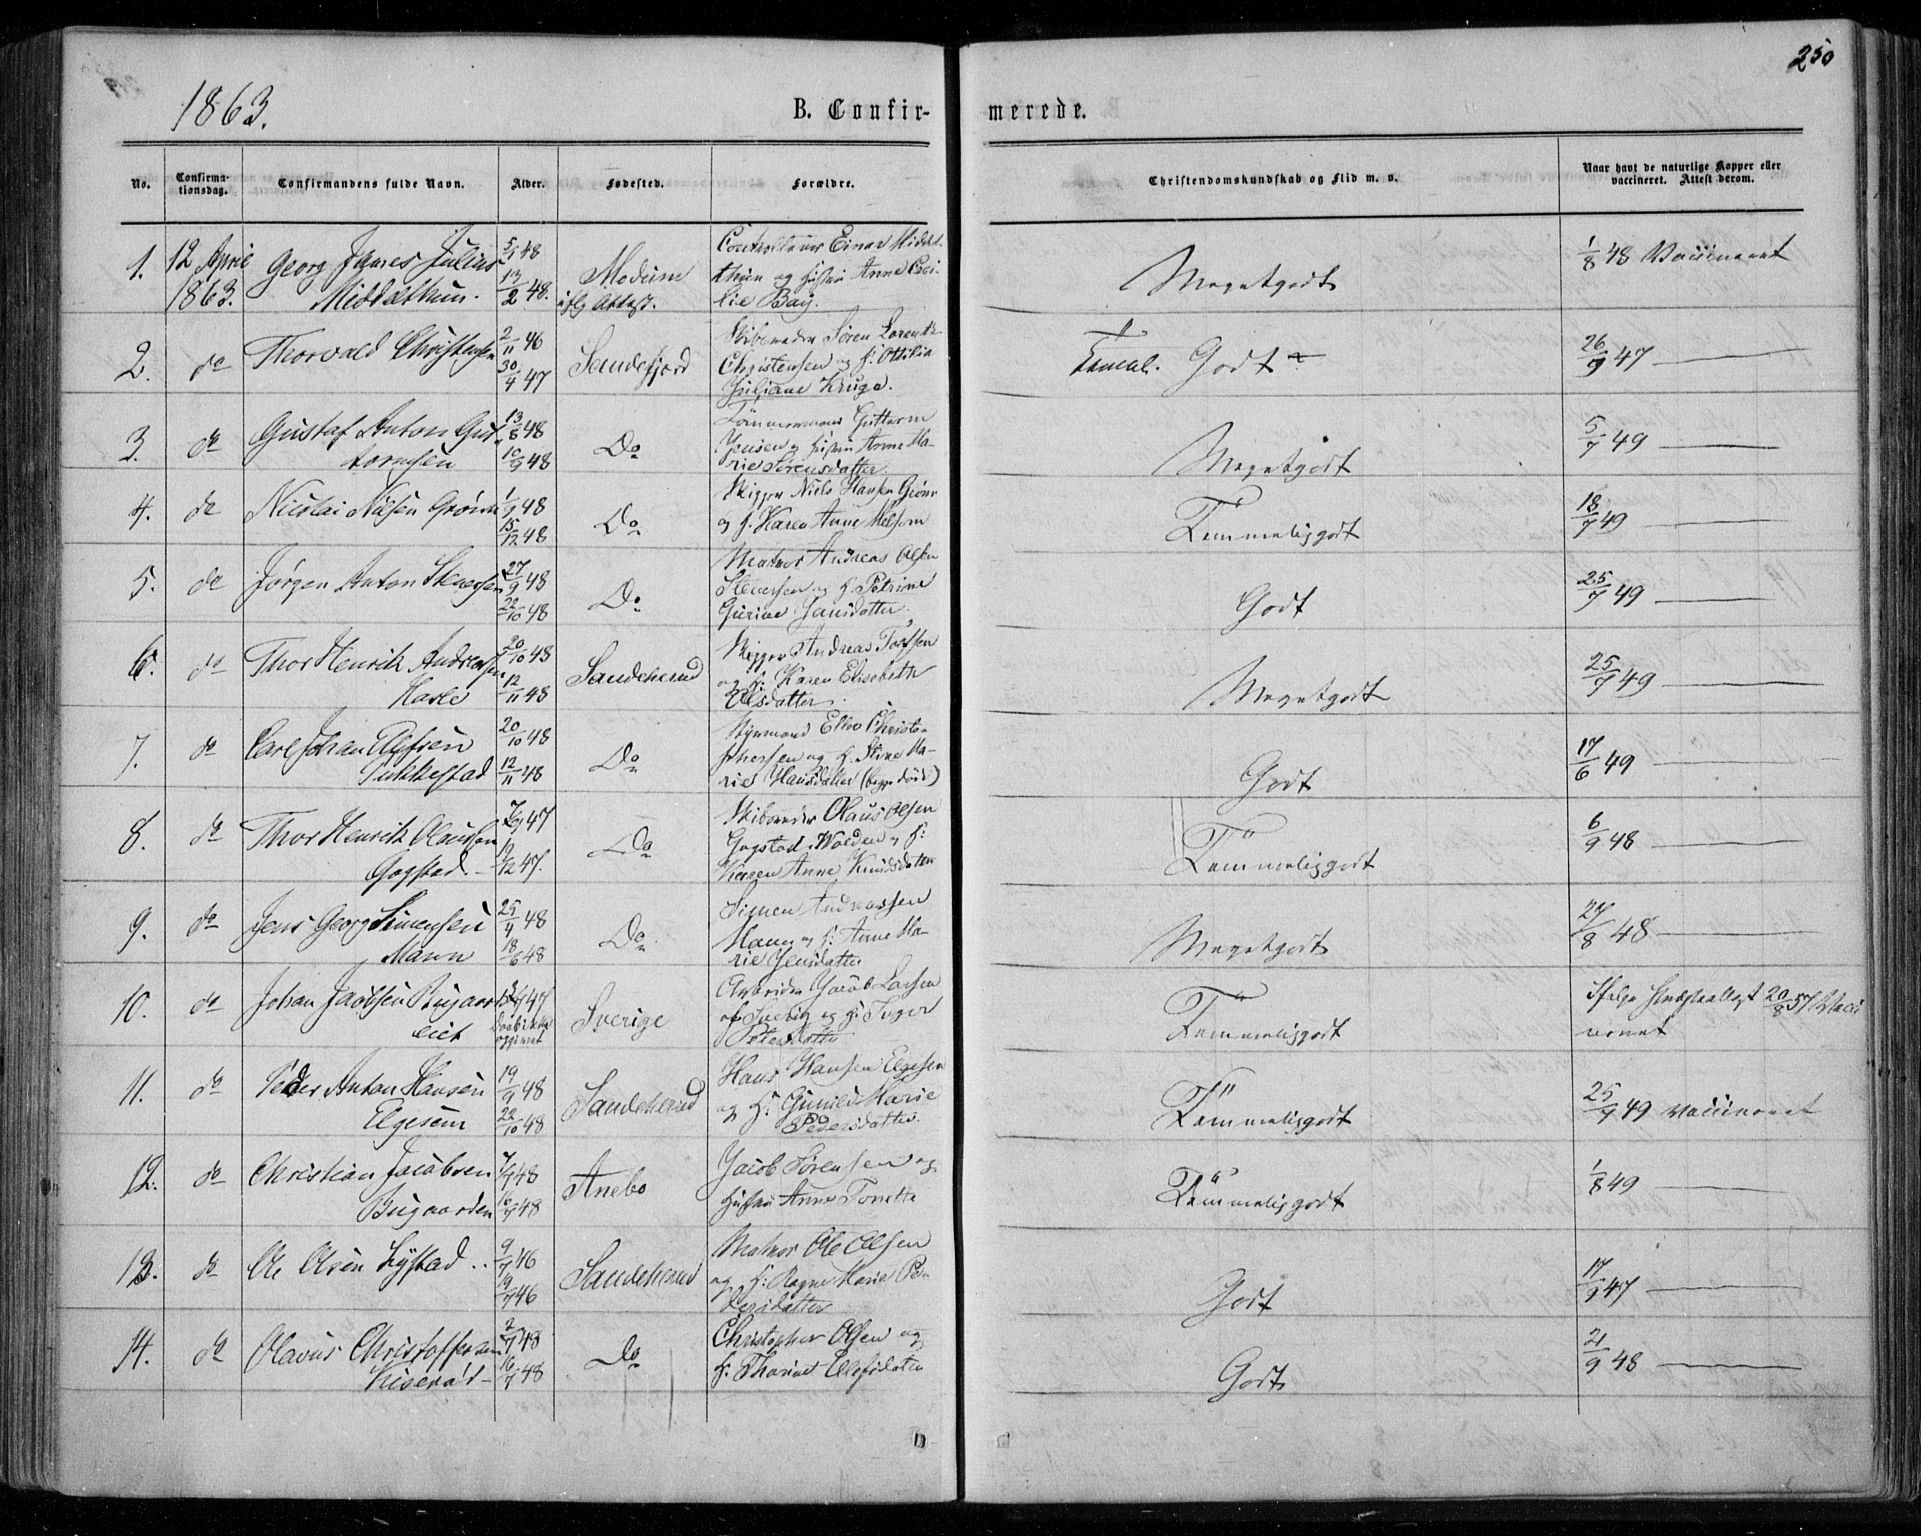 250
1863.
B. Confir-
merede.
No.
Confirma-
tionsdag.
Confirmandens fulde Navn.
Alder.
Fødested.
Forældre.
Christendomskundskab og Flid m. v.
Naar havt de naturlige Kopper eller
vaccineret. Attest derom.
1. 12 April 1863. Georg James Julius
Middelthun.
5/1 48
13/2 48.
Modum
iflg Attest.
Controlleur Einar Middel-
thun og Hustru Anne Ceci-
lie Bay.
Megetgodt
1/8 48 Vaccineret
2. do Thorvald Christensen
2/11 46
30/4 47
Sandefjord
Skibsreder Søren Lorentz
Christensen og H. Ottilia
Juliane Kruge.
Godt
26/9 47 —
3. do Gustaf Anton Gut-
tormsen
13/8 48
10/9 48
Do
Tømmermand Guttorm
Jensen og Hustru Anne Ma-
rie Sørensdatter.
Megetgodt
5/7 49 —
4. do Nicolai Nilsen Grønn
1/9 48
15/12 48
Do
Skipper Niels Hansen Grønn
og H. Karen Anne Melsom
Temmeliggodt
18/7 49 —
5. do Jørgen Anton Stenersen
27/9 48
22/10 48
Do
Matros Andreas Olsen
Stenersen og H. Petrine
Gurine Hansdatter.
Godt
25/7 49 —
6. do Thor Henrik Andreassen
Hasle
20/10 48
12/11 48
Sandeherred
Skipper Andreas Torssen
og H. Karen Elisabeth
Olsdatter.
Megetgodt
25/7 49 —
7. do Carl Johan Ellefsen
Pukkestad
20/10 48
12/11 48
Do
Styrmand Ellev Christo-
phersen og H. Stine Ma-
rie Hansdatter (begge døde)
Godt
17/6 49 —
8. do Thor Henrik Olaussen
Gogstad
7/9 47
19/12 47.
Do
Skibsreder Olaus Olsen
Gogstad og H:
Karen Anne Knudsdatter
Temmeliggodt
6/9 48 —
9. do Jens Georg Simensen
Mann
25/4 48
18/6 48
Do
Simen Andreassen
og H: Anne Ma-
rie Jensdatter
Megetgodt
27/8 48 —
10. do Johan Jacobsen Bugaar-
eiet
47
Sverige
Arbeider Jacob Larsen
af og H: Inger
Petersdatter
Temmeliggodt
Ifølge 20/8 57 Vacci
neret
11. do Peder Anton Hansen
Elgesem
19/9 48
22/10 48
Sandeherred
Hans Hansen Elgesem
og H: Gunild Marie
Pedersdatter.
Temmeliggodt
25/9 49 Vaccineret
12. do Christian Jacobsen
Bugaarden
7/9 48
16/9 48
Anebo
Jacob Sørensen og
Hustru Anne Tonette
Temmeliggodt
1/8 49 —
13. do Ole Olsen Lystad
9/7 46
19/9 46
Sandeherred
Matros Ole Olsen
og H: Ragne Marie Pe-
dersdatter
Godt
17/9 47 —
14. do Olavus Christoffersen
Kiserød
2/7 48
16/7 48
Do
Christopher Olsen og
H. Thorine Ellefsdatter
Godt
21/9 48 —